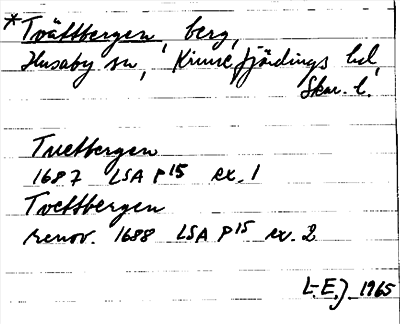 *Tvättbergen, berg,
Husaby sn, Kinnefjärdings hd,
Skar. l.
Tuetbergen
1687 LSA P15 ex. 1
Tvettbergen
renov. 1688 LSA P15 ex. 2
L-E.J 1965